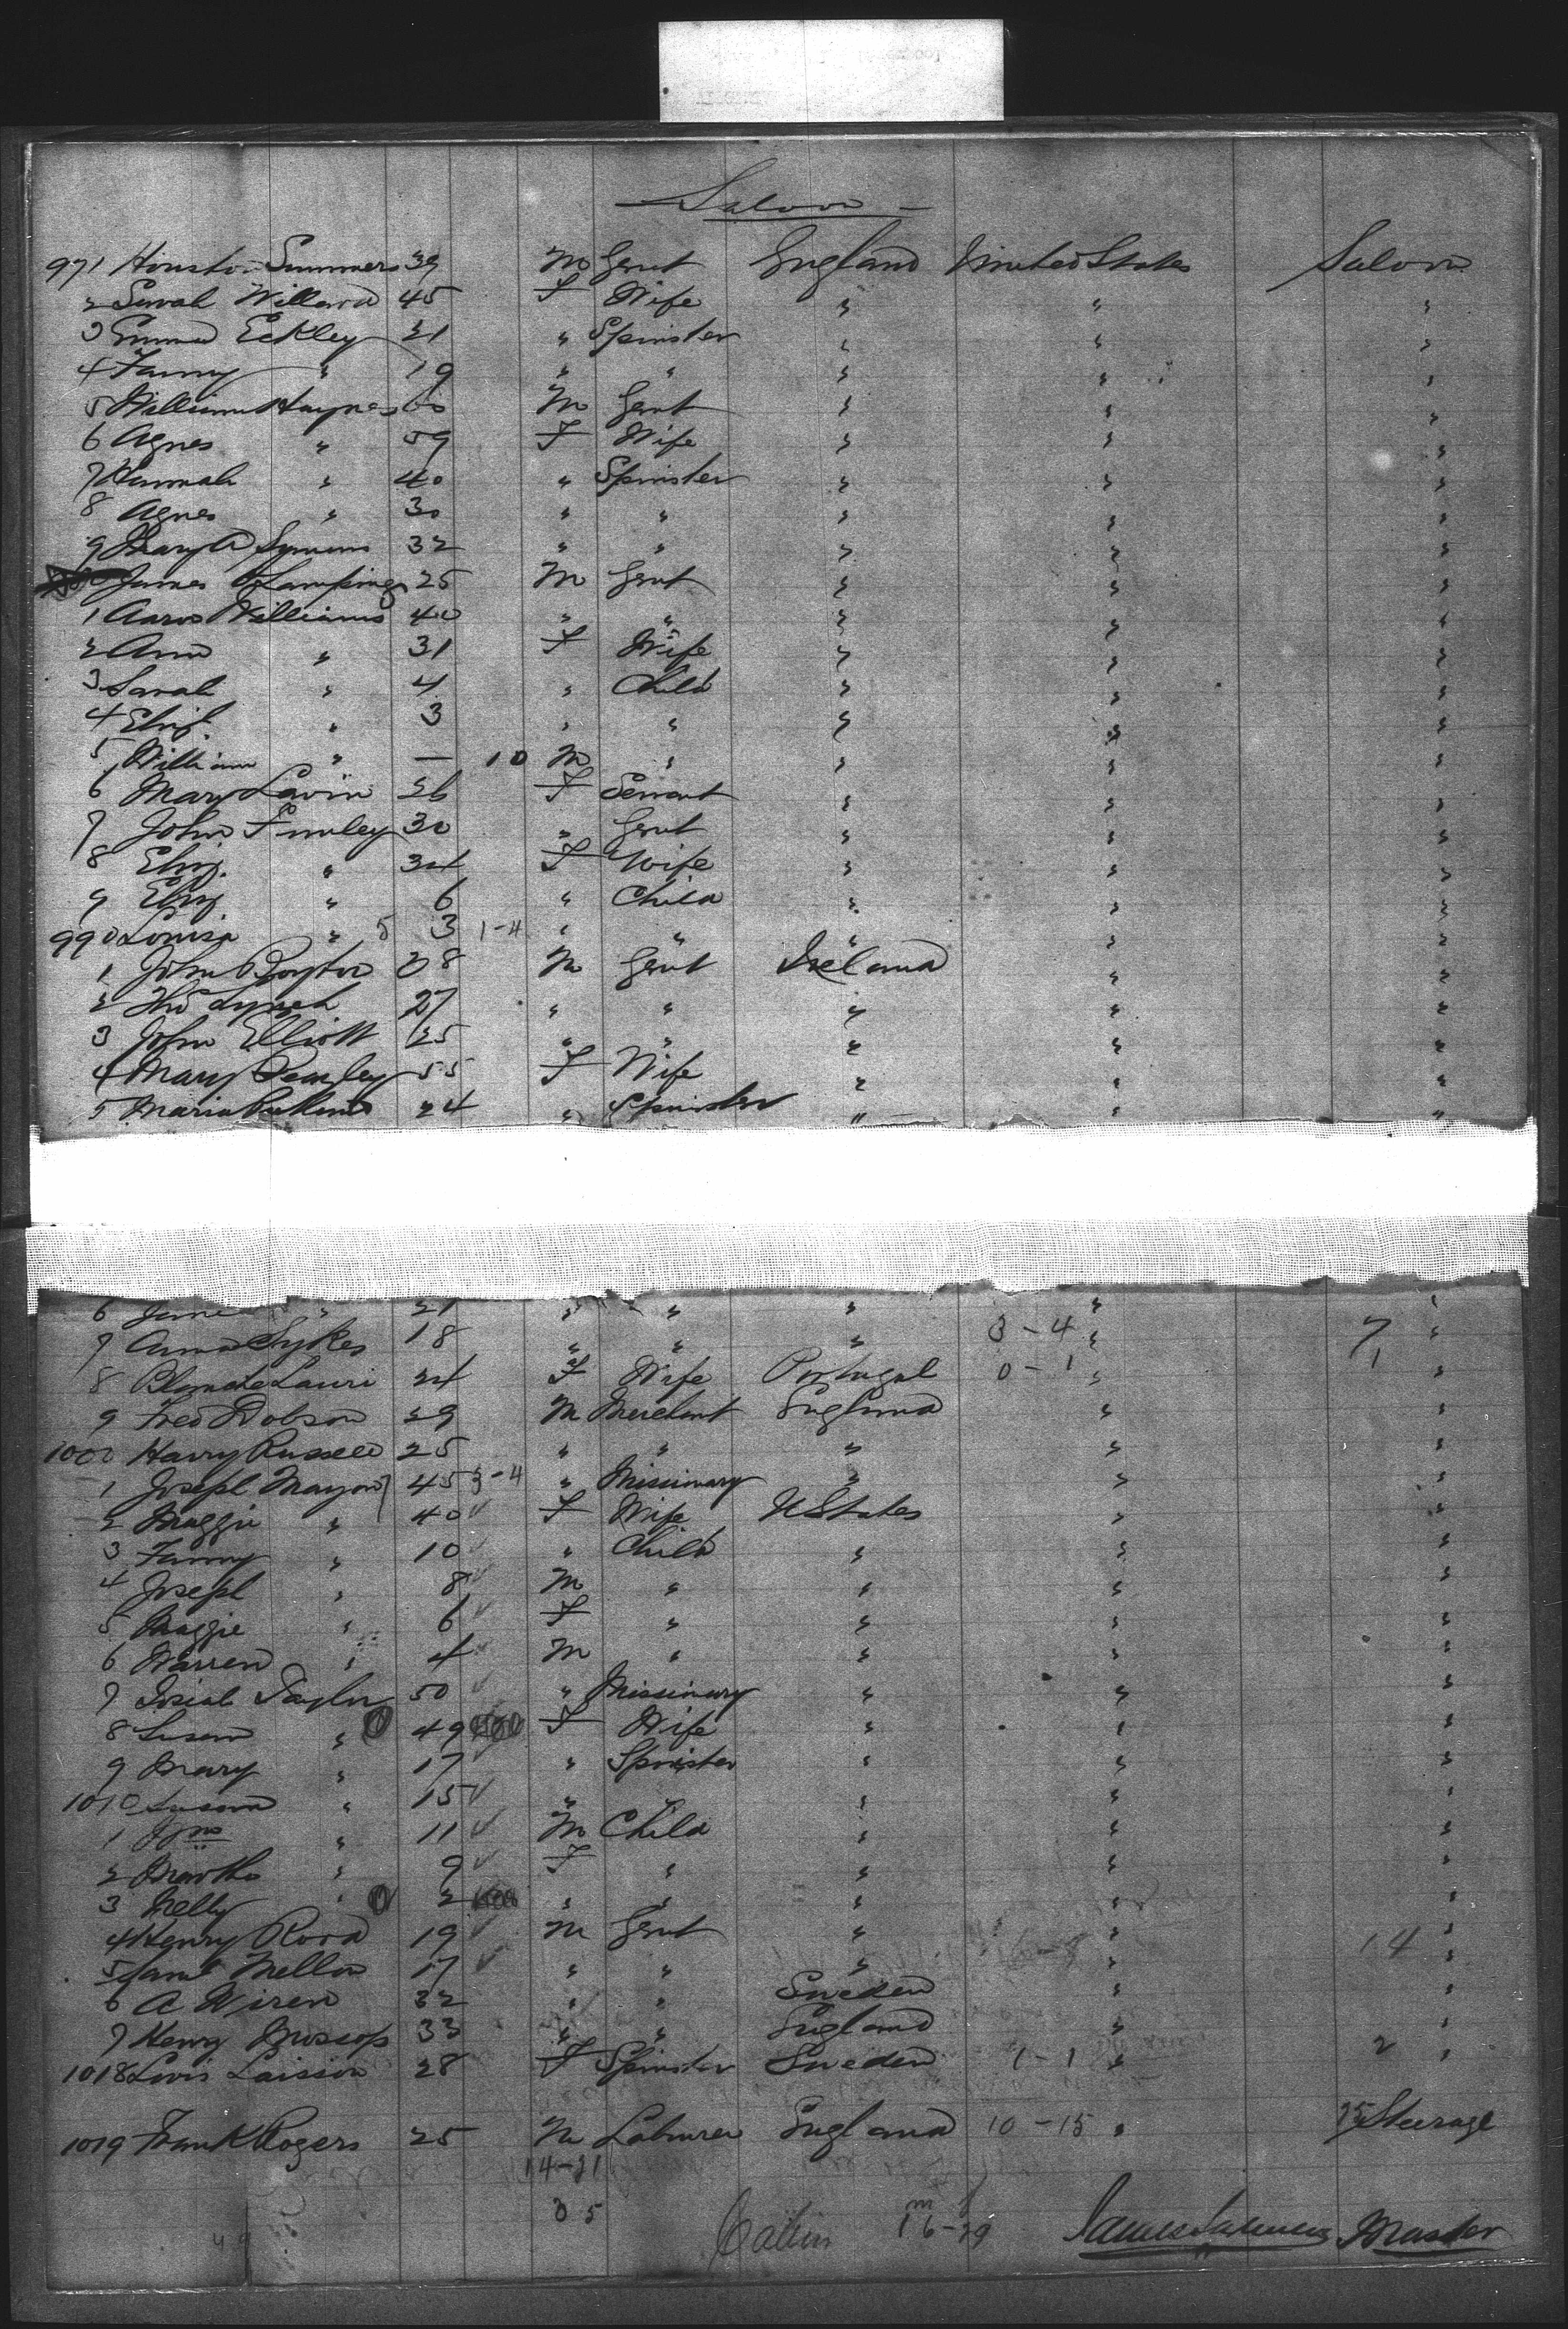 Saloon
971 Summers 39 M Gent England United States Saloon
2 Sarah Willard 45 F Wife " " "
3 Emma Eckley 21 " Spinster " " "
4 Fanny " 19 " " " " "
5 William Haynes 60 M Gent " " "
6 Agnes " 59 F Wife " " "
7 Hannah " 40 " Spinster " " "
8 Agnes " 30 " " " " "
9 Mary A Symons 32 " " " " "
James Lamping 25 M Gent " " "
1 Aaron Williams 40 " " " " "
2 Ann " 31 F Wife " " "
3 Sarah " 4 " Child " " "
4 Eliz. " 3 " " " " "
5 William " — 10 M " " " "
6 Mary Lavin 26 F Servant " " "
7 John 30 " Gent " " "
8 Eliz. " 34 F Wife " " "
9 Eliz " 6 " Child " " "
990 Louisa " 5 3 1-4 " " " " "
1 John 38 M Gent Ireland " "
2 Thos Lynch 27 " " " " "
3 John Elliott 25 " " " " "
4 Mary 55 F Wife " " "
5 Maria 24 " Spinster " " "
6 Jane " 21 " " " " "
7 Anna Sykes 18 " " " 3-4 " 7 "
8 Blanche Lauri 24 F Wife Portugal 0-1 " 1 "
9 Fred Dobson 29 M Merchant England " "
1000 Harry Russell 25 " " " " "
1 Joseph Mayou 45 3-4 " Missionary " " "
2 Maggie " 40 F Wife U States " "
3 Fanny " 10 " Child " " "
4 Joseph " 8 M " " " "
5 Maggie " 6 F " " " "
6 Warren " 4 M " " " "
7 Josiah Taylor 50 " Missionary " " "
8 Susan " 49 F Wife " " "
9 Mary " 17 " Spinster " " "
1010 Susan " 15 " " " " "
1 Jno " 11 M Child " " "
2 Martha " 9 F " " " "
3 Nelly " 2 " " " " "
4 Henry Rood 19 M Gent " 6-8 " 14 "
5 Mellon 17 " " " " "
6 A Wiren 32 " " Sweden " "
7 Henry Mossop 33 " " England " "
1018 Lovis Laisson 28 F Spinster Sweden 1-1 " 2 "
1019 Frank Rogers 25 M Labourer England 10-15 " 25 Steerage
14-21
35
Cabin m f 16-19 James Master